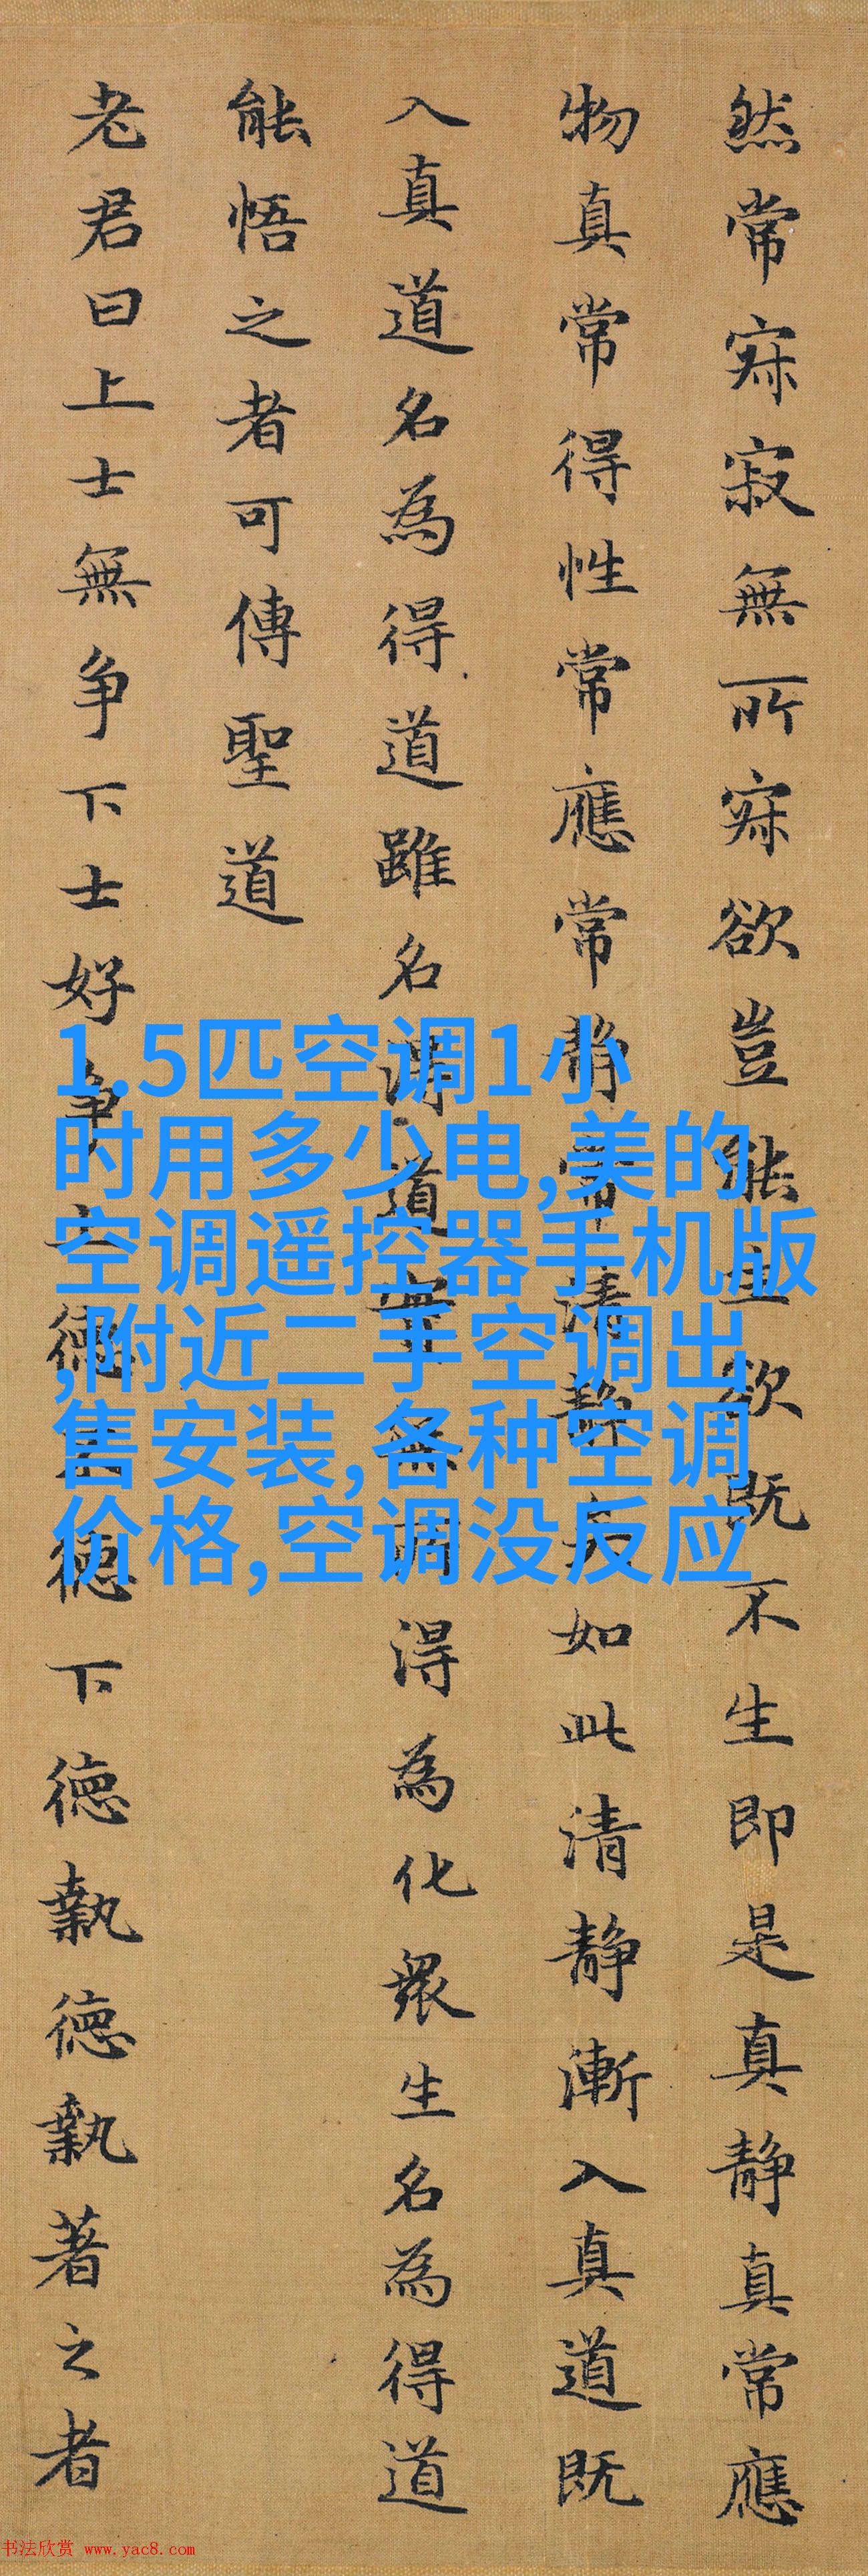 然常寂寂無所寂欲豈能生欲既不生即是真静真常應
物真常得性常應常静常清静矣如此清静漸入真道既
入真道名為得道雖名得道實無所得為化衆生名為得道
能悟之者可傳聖道
老君曰上士無争下士好争上徳不徳下徳執徳執著之者
1.5匹空调1小
时用多少电,美的
空调遥控器手机版
,附近二手空调出
售安装,各种空调
价格,空调没反应
书法欣赏 www.yac8.com